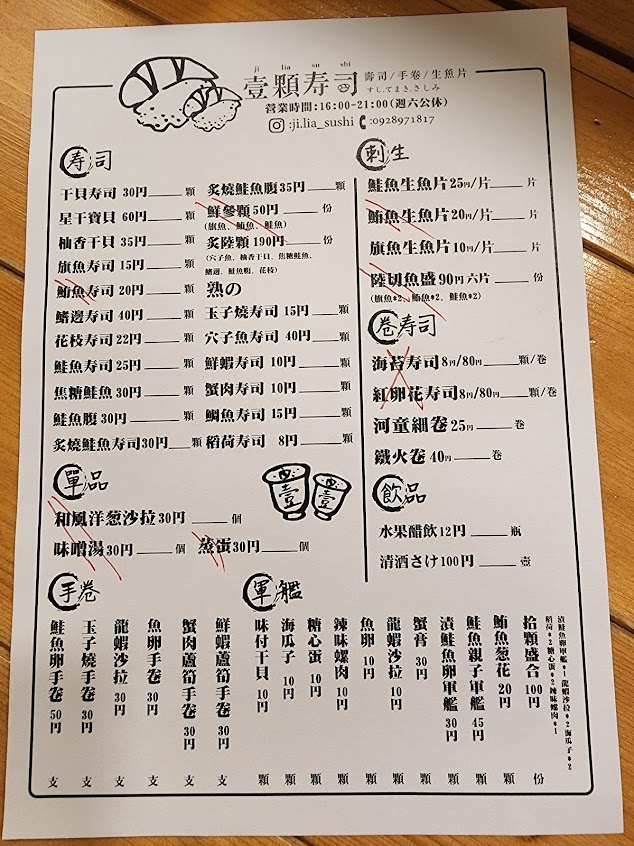 ji lia su shi
壹顆寿司 壽司/手卷/生魚片
すし.てまき.さしみ
營業時間:16:00-21:00(週六公休)
:ji.lia_sushi :0928971817
寿司
干貝寿司 30円____顆
星干寶貝 60円____顆
柚香干貝 35円____顆
旗魚寿司 15円____顆
鮪魚寿司 20円____顆
鰭邊寿司 40円____顆
花枝寿司 22円____顆
鮭魚寿司 25円____顆
焦糖鮭魚 30円____顆
鮭魚腹 30円____顆
炙燒鮭魚寿司30円____顆
炙燒鮭魚腹 35円____顆
鮮參顆 50円____份
(旗魚、鮪魚、鮭魚)
炙陸顆 190円____份
(穴子魚、柚香干貝、焦糖鮭魚、
鰭邊、鮭魚腹、花枝)
熟の
玉子燒寿司 15円____顆
穴子魚寿司 40円____顆
鮮蝦寿司 10円____顆
蟹肉寿司 10円____顆
鯛魚寿司 15円____顆
稻荷寿司 8円____顆
刺生
鮭魚生魚片 25円/片____片
鮪魚生魚片 20円/片____片
旗魚生魚片 10円/片____片
陸切魚盛 90円 六片____份
(旗魚*2、鮪魚*2、鮭魚*2)
卷寿司
海苔寿司 8円/80円____顆/卷
紅卵花寿司 8円/80円____顆/卷
河童細卷 25円____卷
鐵火卷 40円____卷
飲品
水果醋飲 12円____瓶
清酒さけ 100円____壺
單品
和風洋葱沙拉 30円____個
味噌湯 30円____個
蒸蛋 30円____個
壹
壹
手卷
鮭魚卵手卷 50円 支
玉子燒手卷 30円 支
龍蝦沙拉 30円 支
魚卵手卷 30円 支
蟹肉蘆筍手卷 30円 支
鮮蝦蘆筍手卷 30円 支
軍艦
味付干貝 10円 顆
海瓜子 10円 顆
糖心蛋 10円 顆
辣味螺肉 10円 顆
魚卵 10円 顆
龍蝦沙拉 10円 顆
蟹膏 30円 顆
漬鮭魚卵軍艦 30円 顆
鮭魚親子軍艦 45円 顆
鮪魚葱花 20円 顆
拾顆盛合 100円 份
漬鮭魚卵軍艦*1 龍蝦沙拉*2 海瓜子*2
稻荷*2 糖心蛋*2 辣味螺肉*1